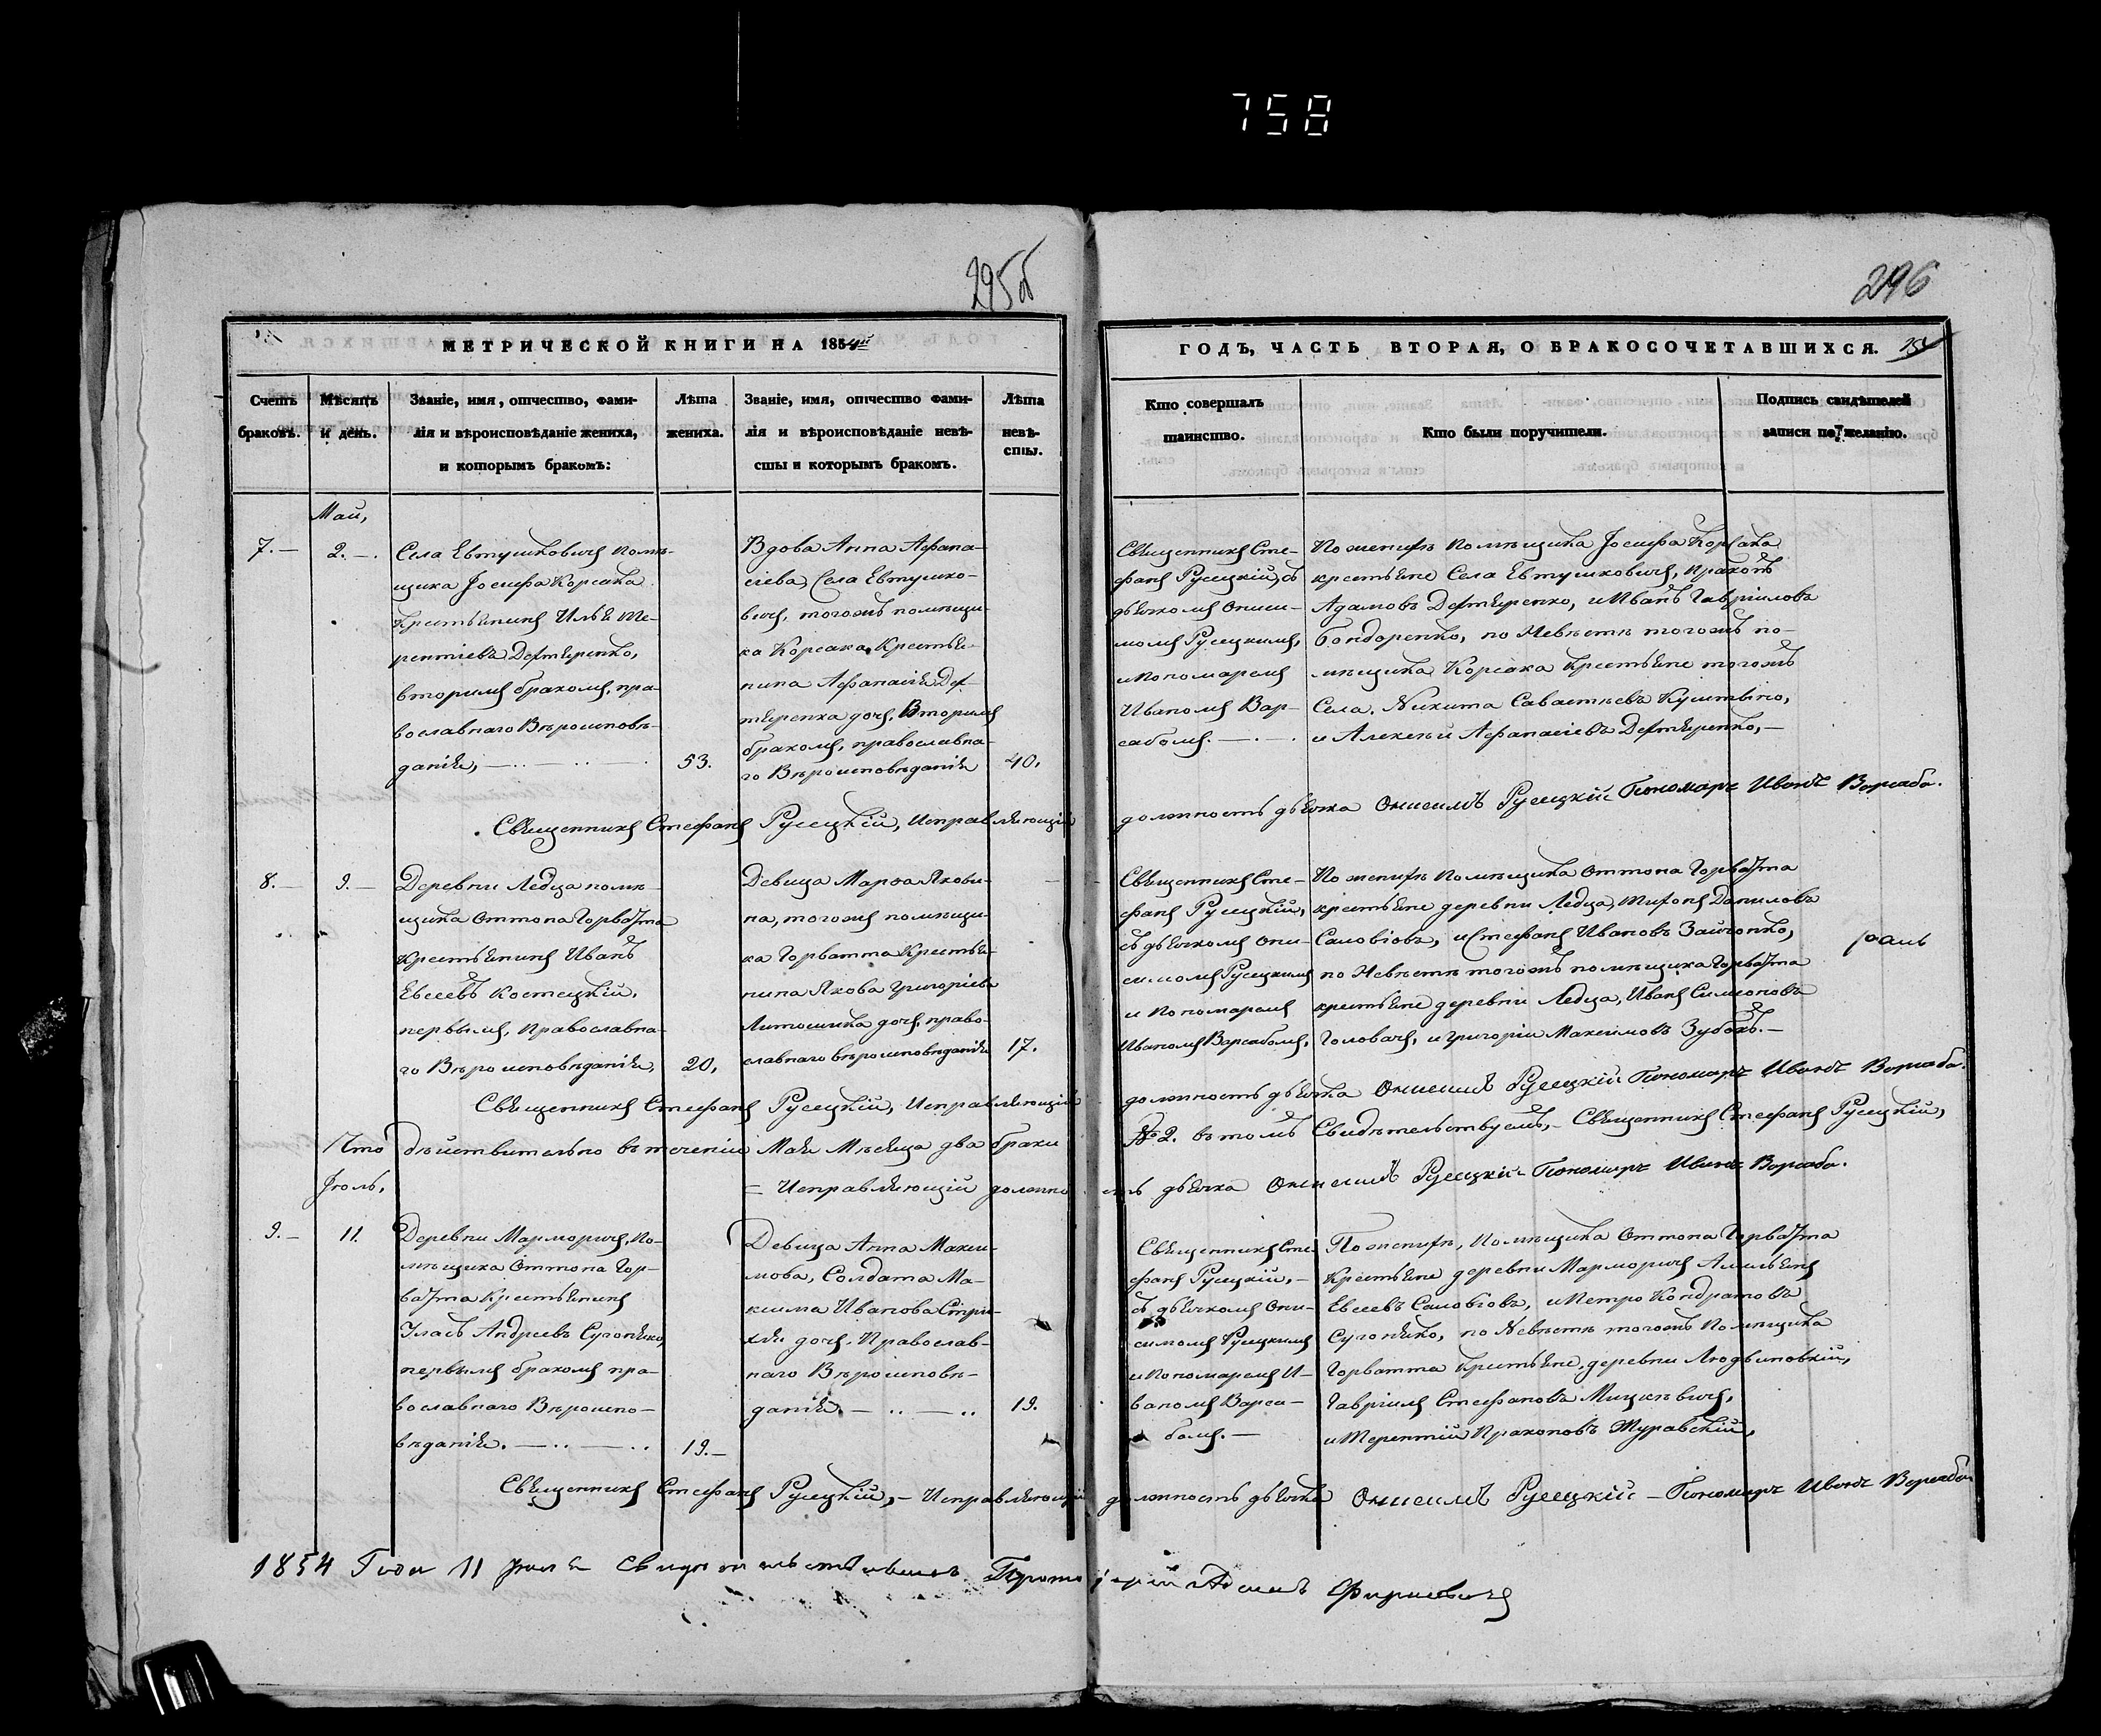 758
295об
296
МЕТРИЧЕСКОЙ КНИГИ НА 1854й
ГОДЪ, ЧАСТЬ ВТОРАЯ, О БРАКОСОЧЕТАВШИХСЯ.
Счетъ браковъ.
Мѣсяцъ и день.
Званіе, имя, отчество, фами-
лія и вѣроисповѣданіе жениха,
и которымъ бракомъ:
Лѣта
жениха.
Званіе, имя, отчество фами-
лія и вѣроисповѣданіе невѣ-
сты и которымъ бракомъ.
Лѣта
невѣ-
сты.
Кто совершалъ
таинство.
Кто были поручители.
Подпись свидѣтелей
записи по желанію.
Май,
7.—
2.—.
Села Евтушковичъ помѣ-
щика Іосифа Корсака
Крестьянинъ Илья Те-
рентіевъ Дехтяренко,
вторымъ бракомъ, пра-
вославнаго Вѣроисповѣ-
данія,
53.
Вдова Анна Афана-
сіева, Села Евтушко-
вичъ, тогожъ помѣщи-
ка Корсака, Крестья-
нина Афанасія Дех-
тяренка дочь, Вторымъ
бракомъ, православна-
го Вѣроисповѣданія
40.
Священникъ Сте-
фанъ Русецкій, съ
дьячкомъ Ониси-
момъ Русецкимъ,
и Пономаремъ
Иваномъ Вар-
сабомъ.
По женихѣ Помѣщика Іосифа Корсака
крестьяне Села Евтушковичъ, Пракопъ
Адамовъ Дехтяренко, и Иванъ Гавріиловъ
Бондаренко, по Невѣстѣ тогожъ по-
мѣщика Корсака Крестьяне тогожъ
Села, Никита Савастьевъ
и Алексѣй Афанасіевъ Дехтяренко,—
Священникъ Стефанъ Русецкій, Исправляющій должность дьячка Онисимъ Русецкій Пономарь Иванъ Варсаба.
8.—
9.—
Деревни Ледца помѣ-
щика Оттона Горватта
Крестьянинъ Иванъ
Евсеевъ Костецкій,
первымъ, Православна-
го Вѣроисповѣданія,
20,
Девица Марѳа Якови-
на, тогожъ помѣщи-
ка Горватта Крестья-
нина Якова Григоріева
Литошика дочь, право-
славнаго вѣроисповѣданія
17.
Священникъ Сте-
фанъ Русецкій,
съ дьячкомъ Они-
симомъ Русецкимъ
и Пономаремъ
Иваномъ Варсабомъ.
По женихѣ Помѣщика Оттона Горватта
крестьяне деревни Ледца, Тихонъ Даниловъ
Саловіовъ, и Стефанъ Ивановъ Зайчонко,
по Невѣстѣ тогожъ помѣщика Горватта
крестьяне деревни Ледца, Иванъ Симеоновъ
Головачъ, и Григорій Максимовъ Зубокъ.—
Священникъ Стефанъ Русецкій, Исправляющій должность дьячка Онисимъ Русецкій Пономарь Иванъ Варсаба.
Что дѣйствительно въ теченіи Мая Мѣсяца два браки № 2. въ томъ Свидѣтельствуемъ,— Священникъ Стефанъ Русецкій,
= Исправляющій должность дьячка Онисимъ Русецкій Пономарь Иванъ Варсаба.
Іюль,
9.—
11.
Деревни Марморичъ, По-
мѣщика Оттона Гор-
ватта Крестьянинъ
Андреевъ Сугоняко,
первымъ бракомъ пра-
вославнаго Вѣроиспо-
вѣданія.
19.—
Девица Анна Макси-
мова, Солдата Ма-
ксима Иванова
дочь, Православ-
наго Вѣроисповѣ-
данія.
19.
Священникъ Сте-
фанъ Русецкій,—
съ дьячкомъ Они-
симомъ Русецкимъ
и Пономаремъ И-
ваномъ Варса-
бомъ.—
По женихѣ, Помѣщика Оттона Горватта
Крестьяне деревни Марморичъ Амильянъ
Евсеевъ Саловіовъ, и Петро Кондратовъ
Сугоняко, по Невѣстѣ тогожъ Помѣщика
Горватта Крестьяне, деревни Людвиповкій,
Гавріилъ Стефановъ Мицкѣвичъ,
и Терентій Пракоповъ Журавскій,
Священникъ Стефанъ Русецкій,— Исправляющій должность дьячка Онисимъ Русецкій — Пономарь Иванъ Варсаба
1854 Года 11 Іюля Свидѣтельствовалъ Протоіерей Фирцевичъ